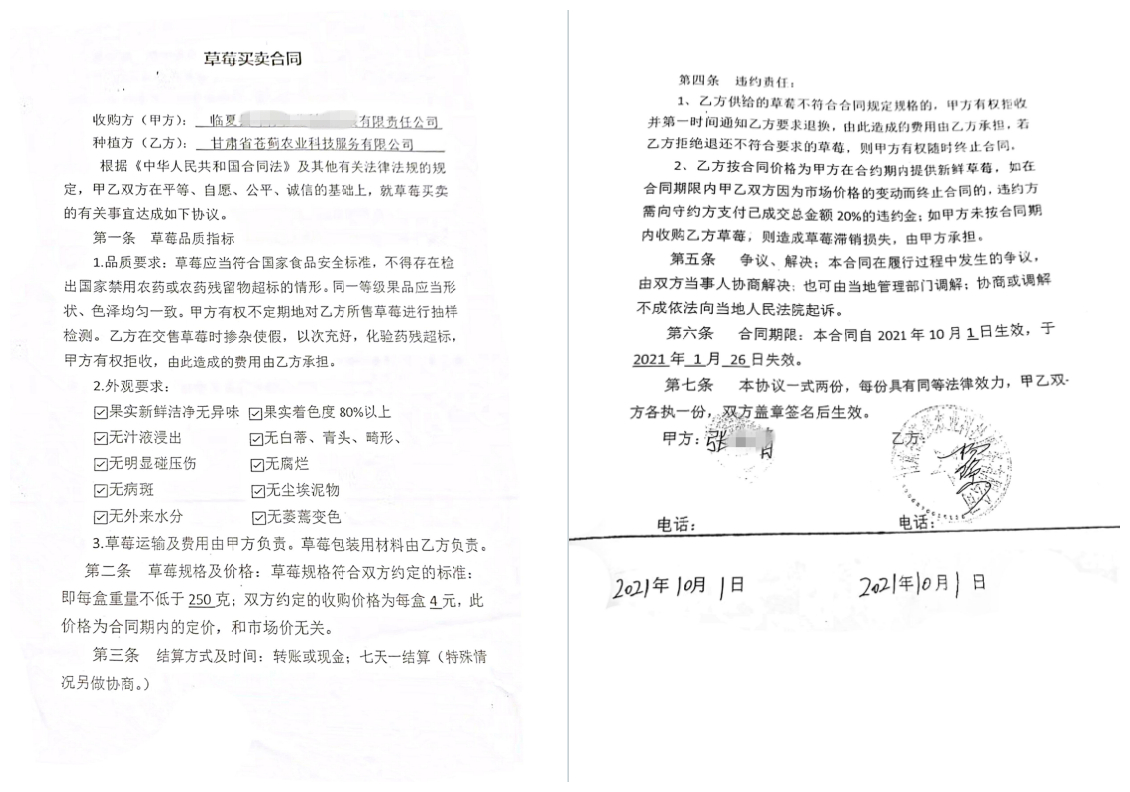 草莓买卖合同
收购方（甲方）：临夏 有限责任公司
种植方（乙方）：甘肃省苍蓟农业科技服务有限公司
根据《中华人民共和国合同法》及其他有关法律法规的规
定，甲乙双方在平等、自愿、公平、诚信的基础上，就草莓买卖
的有关事宜达成如下协议。
第一条 草莓品质指标
1.品质要求：草莓应当符合国家食品安全标准，不得存在检
出国家禁用农药或农药残留物超标的情形。同一等级果品应当形
状、色泽均匀一致。甲方有权不定期地对乙方所售草莓进行抽样
检测。乙方在交售草莓时掺杂使假，以次充好，化验药残超标，
甲方有权拒收，由此造成的费用由乙方承担。
2.外观要求：
☑果实新鲜洁净无异味 ☑果实着色度 80%以上
☑无汁液浸出 ☑无白蒂、青头、畸形、
☑无明显碰压伤 ☑无腐烂
☑无病斑 ☑无尘埃泥物
☑无外来水分 ☑无萎蔫变色
3.草莓运输及费用由甲方负责。草莓包装用材料由乙方负责。
第二条 草莓规格及价格：草莓规格符合双方约定的标准：
即每盒重量不低于 250 克；双方约定的收购价格为每盒 4 元，此
价格为合同期内的定价，和市场价无关。
第三条 结算方式及时间：转账或现金；七天一结算（特殊情
况另做协商。）
第四条 违约责任：
1、乙方供给的草莓不符合合同规定规格的，甲方有权拒收
并第一时间通知乙方要求退换，由此造成的费用由乙方承担，若
乙方拒绝退还不符合要求的草莓，则甲方有权随时终止合同。
2、乙方按合同价格为甲方在合约期内提供新鲜草莓，如在
合同期限内甲乙双方因为市场价格的变动而终止合同的，违约方
需向守约方支付已成交总金额 20%的违约金；如甲方未按合同期
内收购乙方草莓，则造成草莓滞销损失，由甲方承担。
第五条 争议、解决：本合同在履行过程中发生的争议，
由双方当事人协商解决；也可由当地管理部门调解；协商或调解
不成依法向当地人民法院起诉。
第六条 合同期限：本合同自 2021 年 10 月 1 日生效，于
2021 年 1 月 26 日失效。
第七条 本协议一式两份，每份具有同等法律效力，甲乙双
方各执一份，双方盖章签名后生效。
甲方：张 乙方：
电话： 电话：
2021年10月1日 2021年10月1日